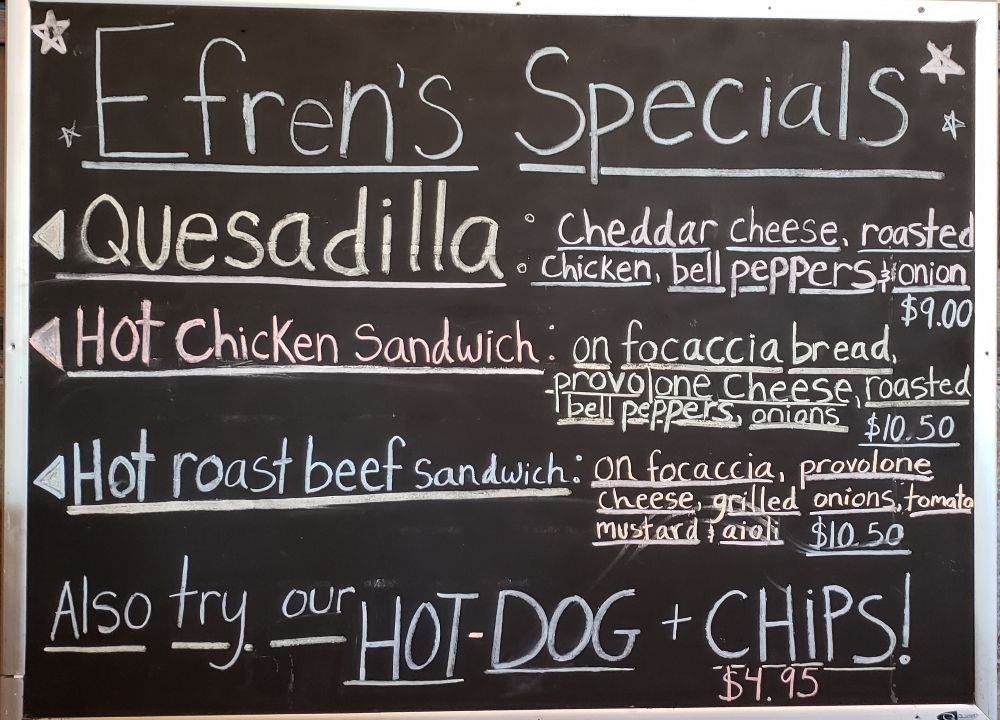 Efren's Specials
Quesadilla : Cheddar cheese, roasted
chicken, bell peppers & onion
$9.00
Hot Chicken Sandwich : on focaccia bread,
-provolone cheese, roasted
bell peppers, onions
$10.50
Hot roast beef sandwich : on focaccia, provolone
cheese, grilled onions, tomato
mustard & aioli $10.50
Also try our HOT-DOG + CHiPS!
$4.95